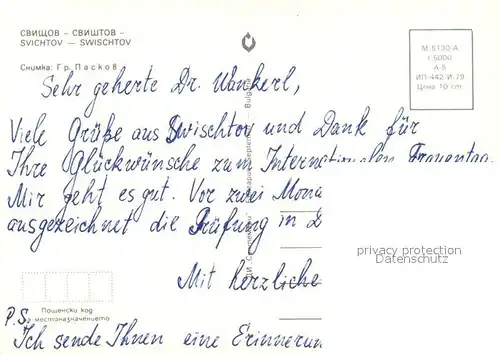 СВИЩОВ – СВИШТОВ –
SVICHTOV – SWISCHTOV
Снимка: Гр. Пасков
М 5130-А
1:5000
А 6
ИП-442-И-79
Цена 10 cm
Sehr geherte Dr. Wankerl,
Viele Grüße aus Swischtov und Dank für
Ihre Glückwünsche zum Internationalen Frauentag.
Mir geht es gut. Vor zwei Mona
ausgezeichnet die Prüfung in
Mit herzliche
privacy protection
Datenschutz
Пощенски код
местоназначението
P.S.
Ich sende Ihnen eine Erinnerun
Bulgaria